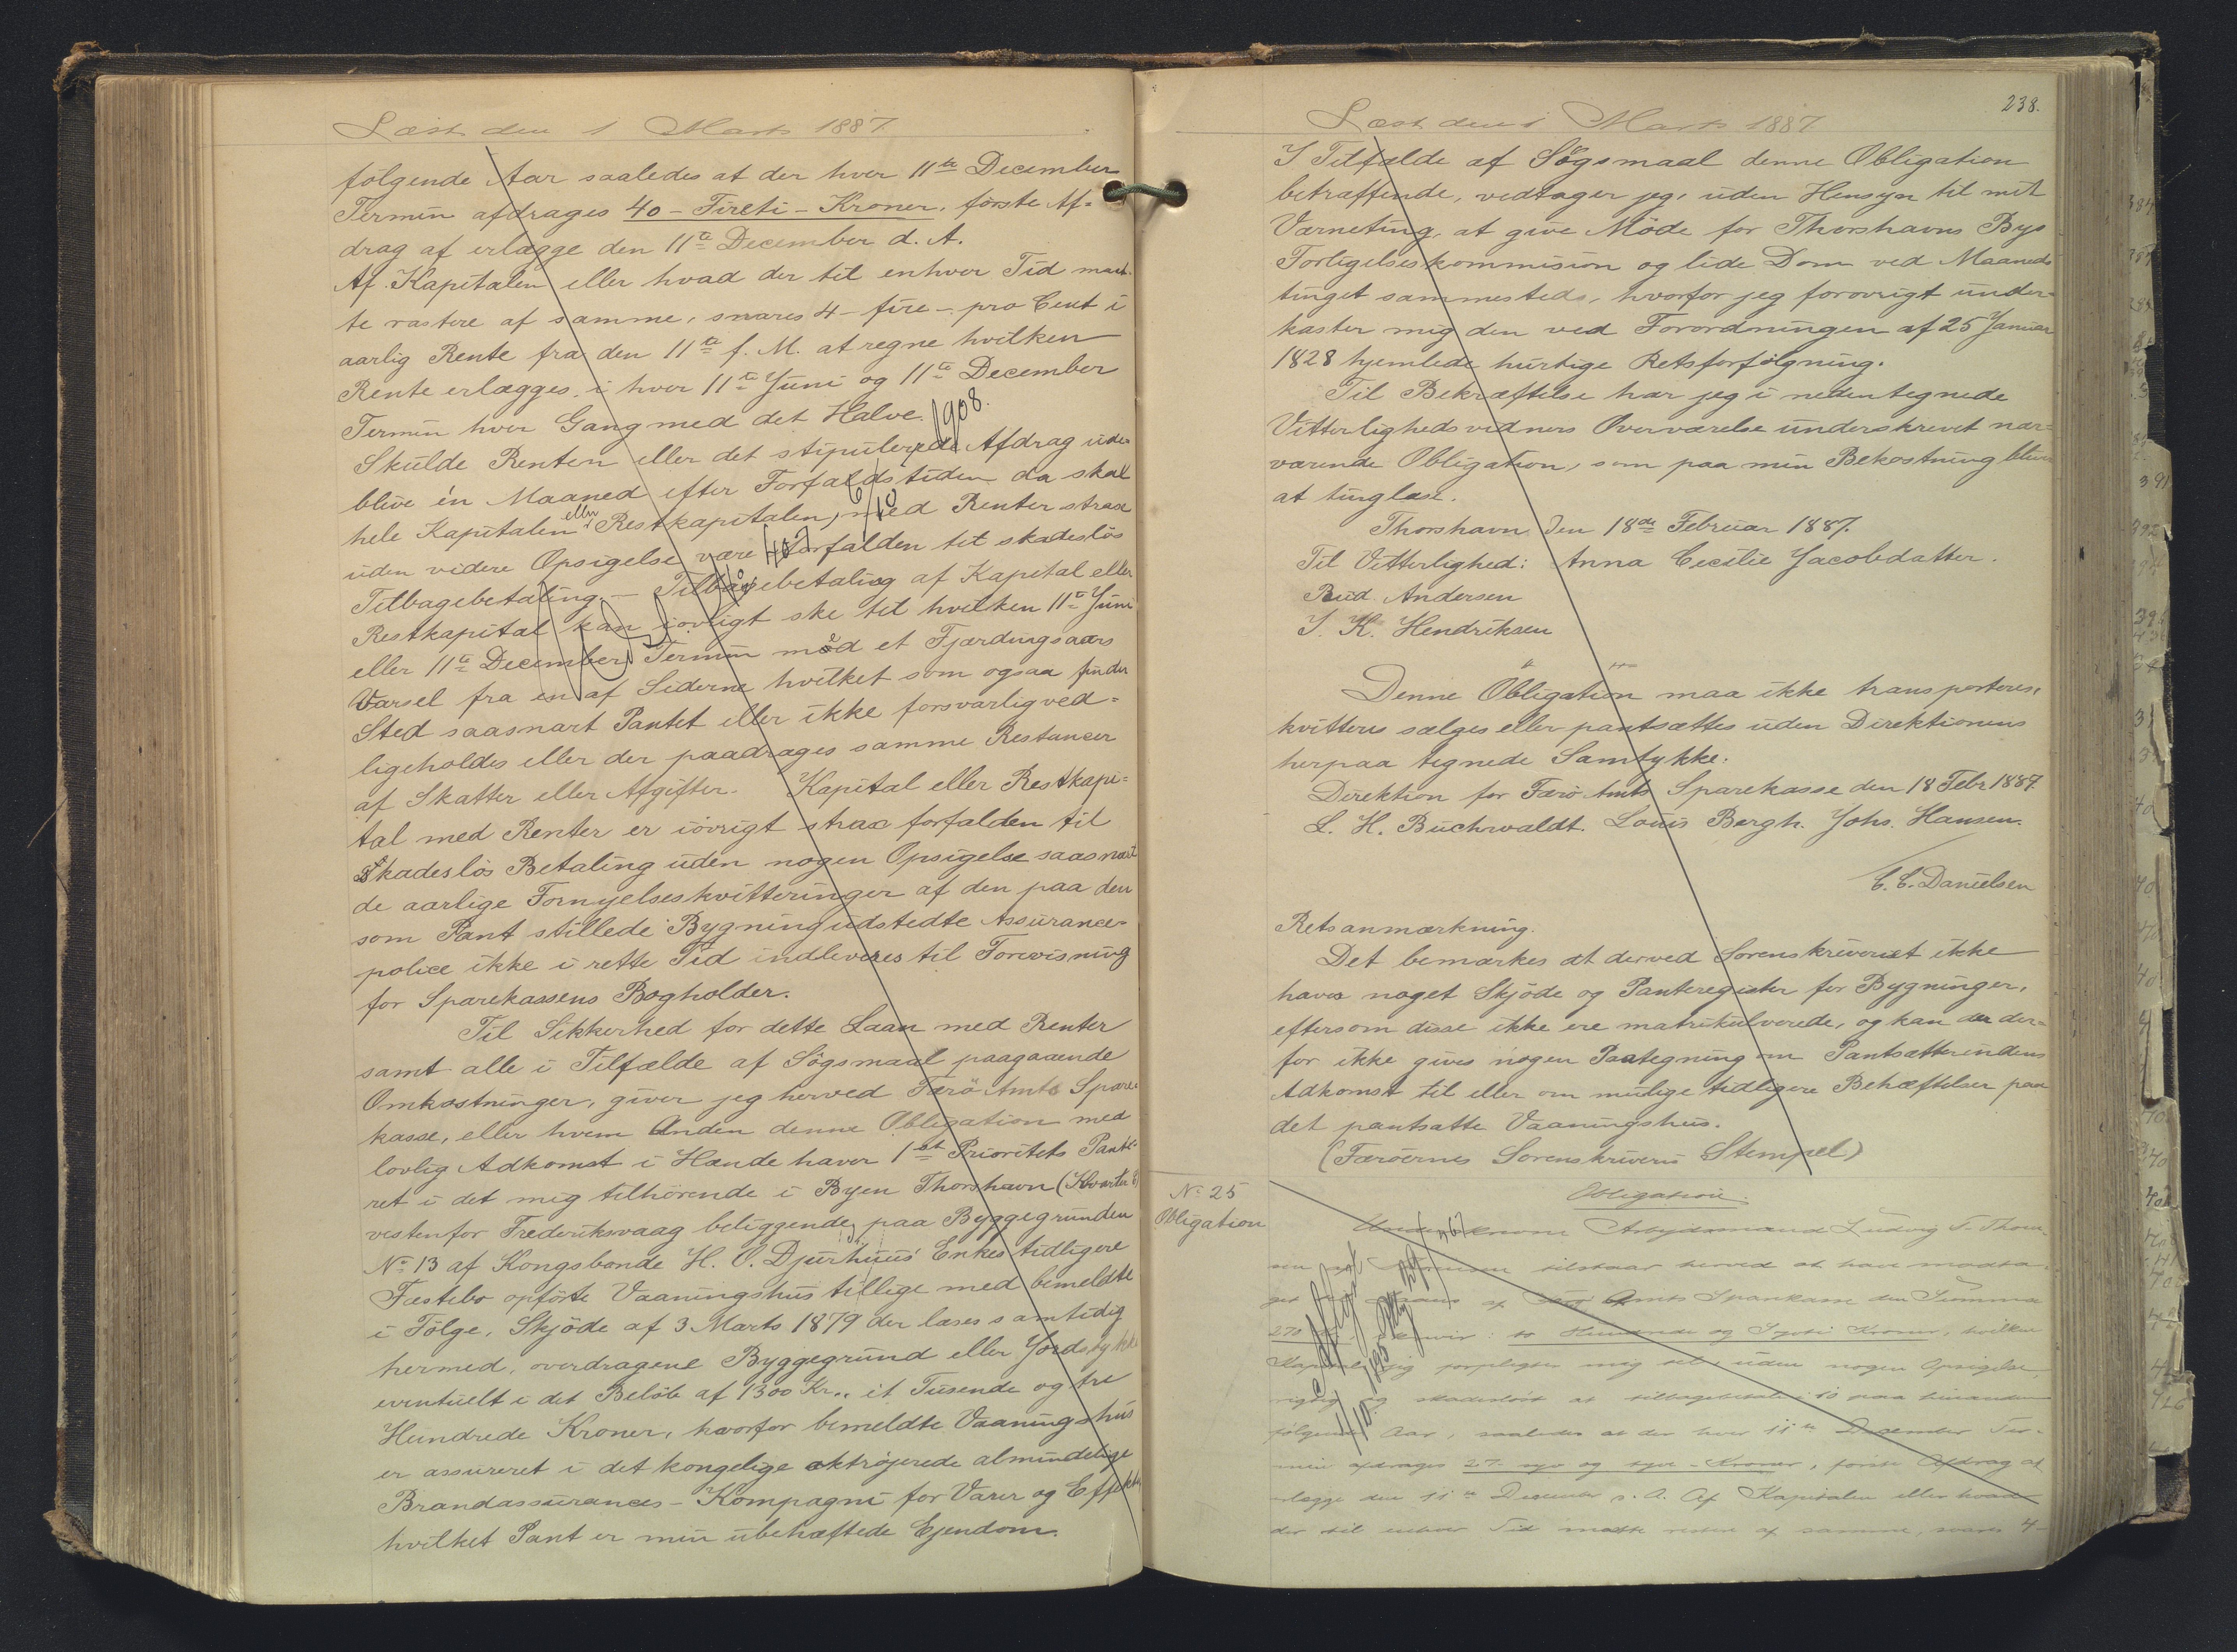 Læst den 1 Marts 1887.
følgende Aar saaledes at der hver 11te December
Termin afdrages 40 - Fireti - Kroner, første Af=
drag af erlægge den 11te December d. A.
Af Kapitalen eller hvad der til enhver Tid maat
te rastere af samme, svares 4 - fire - pro Cent i
aarlig Rente fra den 11te f. M. at regne hvilken
Rente erlægges i hver 11te Juni og 11te December
Termin hver Gang med det Halve.
Skulde Renten eller det stipulerede Afdrag ude=
blive én Maaned efter Forfaldstiden da skal
hele Kapitalen eller Restkapitalen, med Renter strax
uden videre Opsigelse være forfalden til skadesløs
Tilbagebetaling. - Tilbagebetaling af Kapital eller
Restkapital kan iøvrigt ske til hvilken 11te Juni
eller 11te December Termin mod et Fjerdingaars
Varsel fra en af Siderne hvilket som ogsaa finder
Sted saasnart Pantet eller ikke forsvarlig ved=
ligeholdes eller der paadrages samme Restancer
af Skatter eller Afgifter. Kapital eller Restkapi=
tal med Renter er iøvrigt strax forfalden til
skadesløs Betaling uden nogen Opsigelse saasnart
de aarlige Fornyelseskvitteringer af den paa den
som Pant stillede Bygning udstedte Assurance=
police ikke i rette Tid indleveres til Forevisning
for Sparekassens Bogholder.
Til Sikkerhed for dette Laan med Renter
samt alle i Tilfælde af Søgsmaal paagaaende
Omkostninger, giver jeg herved Færø Amts Spare=
kasse, eller hvem Anden denne Obligation med
lovlig Adkomst i Hænde haver 1st Prioritets Pant=
ret i det mig tilhørende i Byen Thorshavn (Kvarter
vestenfor Frederiksvaag beliggende paa Byggegrunden
No 13 af Kongsbonde H. O. Djurhuus' Enkes tidligere
Fæstebo opførte Vaaningshus tillige med bemeldte
i Følge, Skjøde af 3 Marts 1879 der læses samtidig
hermed, overdragene Byggegrund eller Jordstykke
eventuelt i det Beløb af 1300 Kr., et Tusende og tre
Hundrede Kroner, hvorfor bemeldte Vaaningshus
er assureret i det kongelige oktrojerede almindelige
Brandassurances-Kompagni for Varer og Effekter
hvilket Pant er min ubehæftede Ejendom.
1908.
238.
Læst den 1 Marts 1887
I Tilfælde af Søgsmaal denne Obligation
betræffende, vedtager jeg, uden Hensyn til mit
Værneting, at give Møde for Thorshavns Bys
Forligelseskommision og lide Dom ved Maaneds
tinget sammesteds, hvorfor jeg forøvrigt under=
kaster mig den ved Forordningen af 25 Januar
1828 hjemlede hurtige Retsforfølgning.
Til Bekræftelse har jeg i nedentegnede
Vitterlighedsvidners Overværelse underskrevet nær=
værende Obligation, som paa min Bekostning bliver
at tinglæse.
Thorshavn den 18de Februar 1887.
Til Vitterlighed: Anna Cecilie Jacobdatter.
Rud Andersen
J. K. Hendriksen
Denne Obligation maa ikke transporteres,
kvitteres sælges eller pantsættes uden Direktionens
herpaa tegnede Samtykke.
Direktion for Færø Amts Sparekasse den 18 Febr 1887
L. H. Buchwaldt. Louis Bergh. Johs. Hansen.
C. C. Danielsen
Retsanmærkning.
Det bemærkes at derved Sorenskriveriet ikke
haves noget Skjøde og Panteregister for Bygninger,
eftersom disse ikke ere matrikulerede, og kan der der=
for ikke gives nogen Paategning om Pantsætterindens
Adkomst til eller om mulige tidligere Behæftelser paa
det pantsatte Vaaningshus.
(Færøernes Sorenskriveris Stempel)
No 25
Obligation
Obligation.
Arbejdsmand Ludvig
tilstaar herved at have modta=
get af Færø Amts Sparekasse den Summa
270 to Hundrede og Syvti Kroner, hvilken
Kapital jeg forpligter mig til uden nogen Opsigelse,
rigtig og skadesløst at tilbagebetale i 10 paa hinanden
følgende Aar, saaledes at der hver 11te December Ter=
min afdrages 27 - syv og tyve - Kroner, første Afdrag at
erlægge den 11te December d. A. Af Kapitalen eller hvad
der til enhver Tid maatte restere af samme, svares 4-
Aflyst
1/10 1895